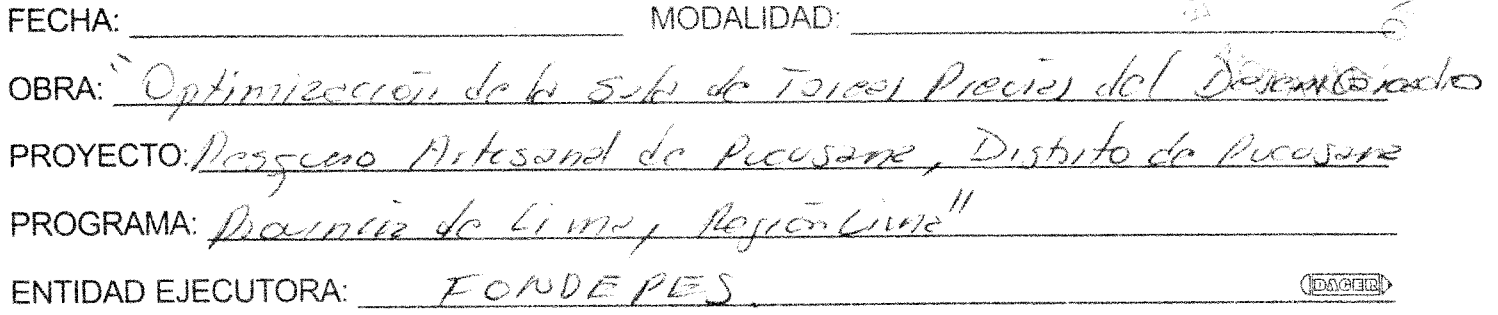 FECHA: MODALIDAD:
OBRA: "Optimización de la Sala de Tareas Previas del Desembarcadero
PROYECTO: Pesquero Artesanal de Pucusana, Distrito de Pucusana
PROGRAMA: Provincia de Lima, Región Lima"
ENTIDAD EJECUTORA: FONDEPES. DAGER